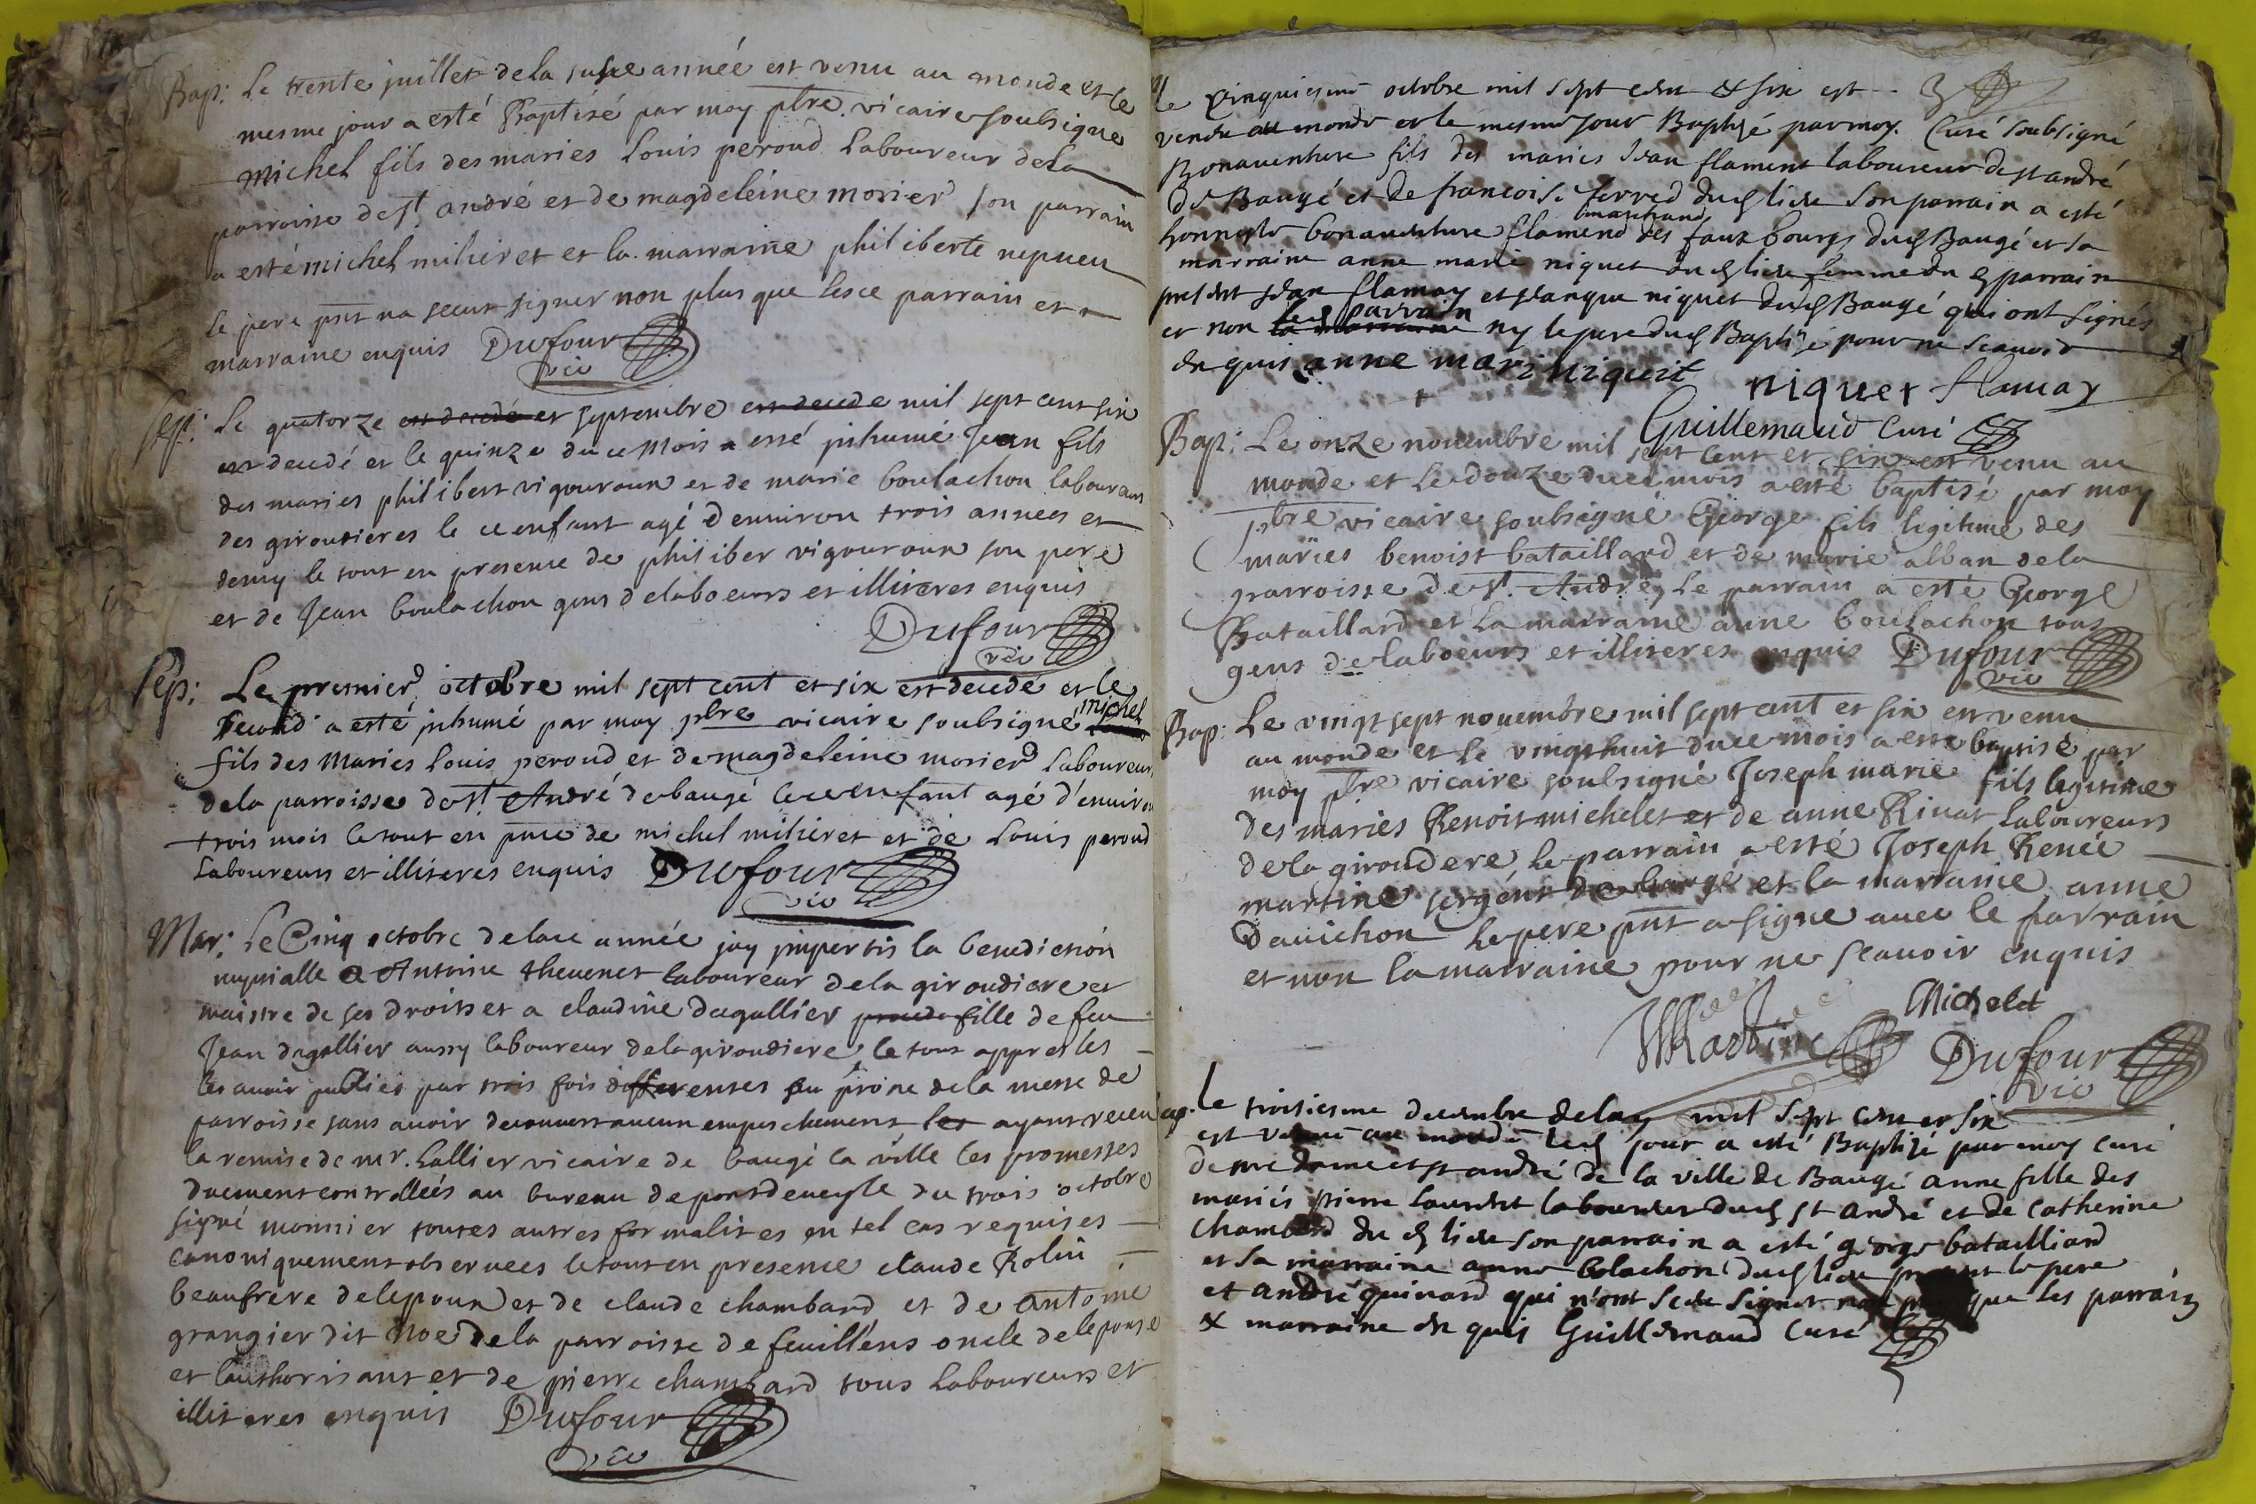 Bap: Le trente juillet de la susd année est venu au monde et le
mesme jour a esté Baptisé par moy pbre vicaire soubsigné
Michel fils des maries Louis peroud Laboureur de La
parroisse de st andré et de magdeleine morier son parrain
a esté michel milieret et la marraine philiberte nepueu
le pere pnt na sceut signer non plus que lesce parrain et
marraine enquis Dufour
vic
Sep: Le quatorze est decedé et septembre est decede mil sept cent six
est decedé et le quinze du ce mois a esté jnhumé Jean fils
des maries philibert vigouroux et de marie boulachon laboureurs
des giroudieres le ce enfant agé d'environ trois années et
demy le tout en presence de philiber vigouroux son pere
et de Jean boulachon gens de laboeurs et illiteres enquis
Dufour
vic
Sep: Le premier octobre mil sept cent et six est decedé et le
second a esté jnhumé par moy pbre vicaire soubsigné michel
fils des Maries Louis peroud et de magdeleine morier Laboureurs
de la parroisse de st André de baugé le ce enfant agé d'enuiron
trois mois le tout en pnce de michel milieret et de Louis peroud
Laboureurs et illiteres enquis Dufour
vic
Mar: Le Cinq octobre de la ce année jay jmpertis la benediction
nuptialle a Antoine theuenet laboureur de la giroudiere et
maistre de ses droits et a claudine degallier fille de feu
Jean degallier aussy laboureur de la giroudiere, le tout appres les
les auoir publiés par trois fois differentes au prone de la messe de
parroisse sans auoir decouuert aucun empeschement les ayant receu
la remise de mr. Lallier vicaire de baugé la ville les promesses
duement controlleés au bureau de pontdeueyle du trois octobre
signé monnier toutes autres formalites en tel cas requises
canoniquement obseruees le tout en presence claude Rolin
beaufrere de lepoux et de claude chambard et de antoine
grangier dit noe de la parroisse de feuillens oncle de lepouse
et lauthorisant et de pierre chambard tous Laboureurs et
illiteres enquis Dufour
vic
Le Cinquiesme octobre mil sept cent & six est
venu au monde et le mesme jour Baptizé par moy Curé soubsigné
Bonauenture fils des maries Jean flament laboureur de st andré
de Baugé et de francoise ferred dud lieu son parrain a esté
honneste bonauenture flamend marchand des faux bourgs dud Baugé et sa
marraine anne marie niquet dud lieu femme du d parrain
present Jean flamay et niquet dud Baugé qui ont signés
et non la marraine led parrain ny le pere dud Baptizé pour ne scauoir
enquis anne mari niqueit niquet flamay
Guillemaud Curé
Bap: Le onze nouembre mil sept cent et six est venu au
monde et le douze du ce mois a esté baptisé par moy
pbre vicaire soubsigné George fils legitime des
maries benoist bataillard et de marie alban de la
parroisse de st. André, le parrain a esté George
Bataillard et la marraine anne boulachon tous
gens de laboeurs et illiteres enquis Dufour
vic
Bap: Le vingt sept nouembre mil sept cent et six est venu
au monde et le vingt huit du ce mois a esté baptisé par
moy pbre vicaire soubsigné Joseph marie fils legitime
des maries Benoit michelet et de anne Riuat Laboureurs
de la giroudere, le parrain a esté Joseph René
martine sergent de baugé et la marraine anne
Dauichon le pere pnt a signe auec le parrain
et non la marraine pour ne scauoir enquis
Michelet
Martine Dufour
vic
Bap. Le troisiesme decembre de lan mil sept cent et six
est venue au monde led jour a esté Baptizé par moy curé
de nre dame et st andré de la ville de Baugé anne fille des
mariés pierre laurent laboureur dud st andré et de Catherine
Chambard du d lieu son parrain a esté george batailliard
et sa marraine anne bolachon dud lieu present le pere
et andré guinard qui n'ont sceu signer non plus que les parrain
& marraine enquis Guillemaud Curé